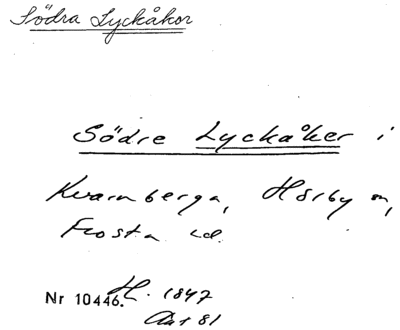 Södra Lyckåkor
Södre Lyckåker i
Kvarnberga, Hörby sn,
Frosta hd.
Nr 10446. H. 1847
Akt 81